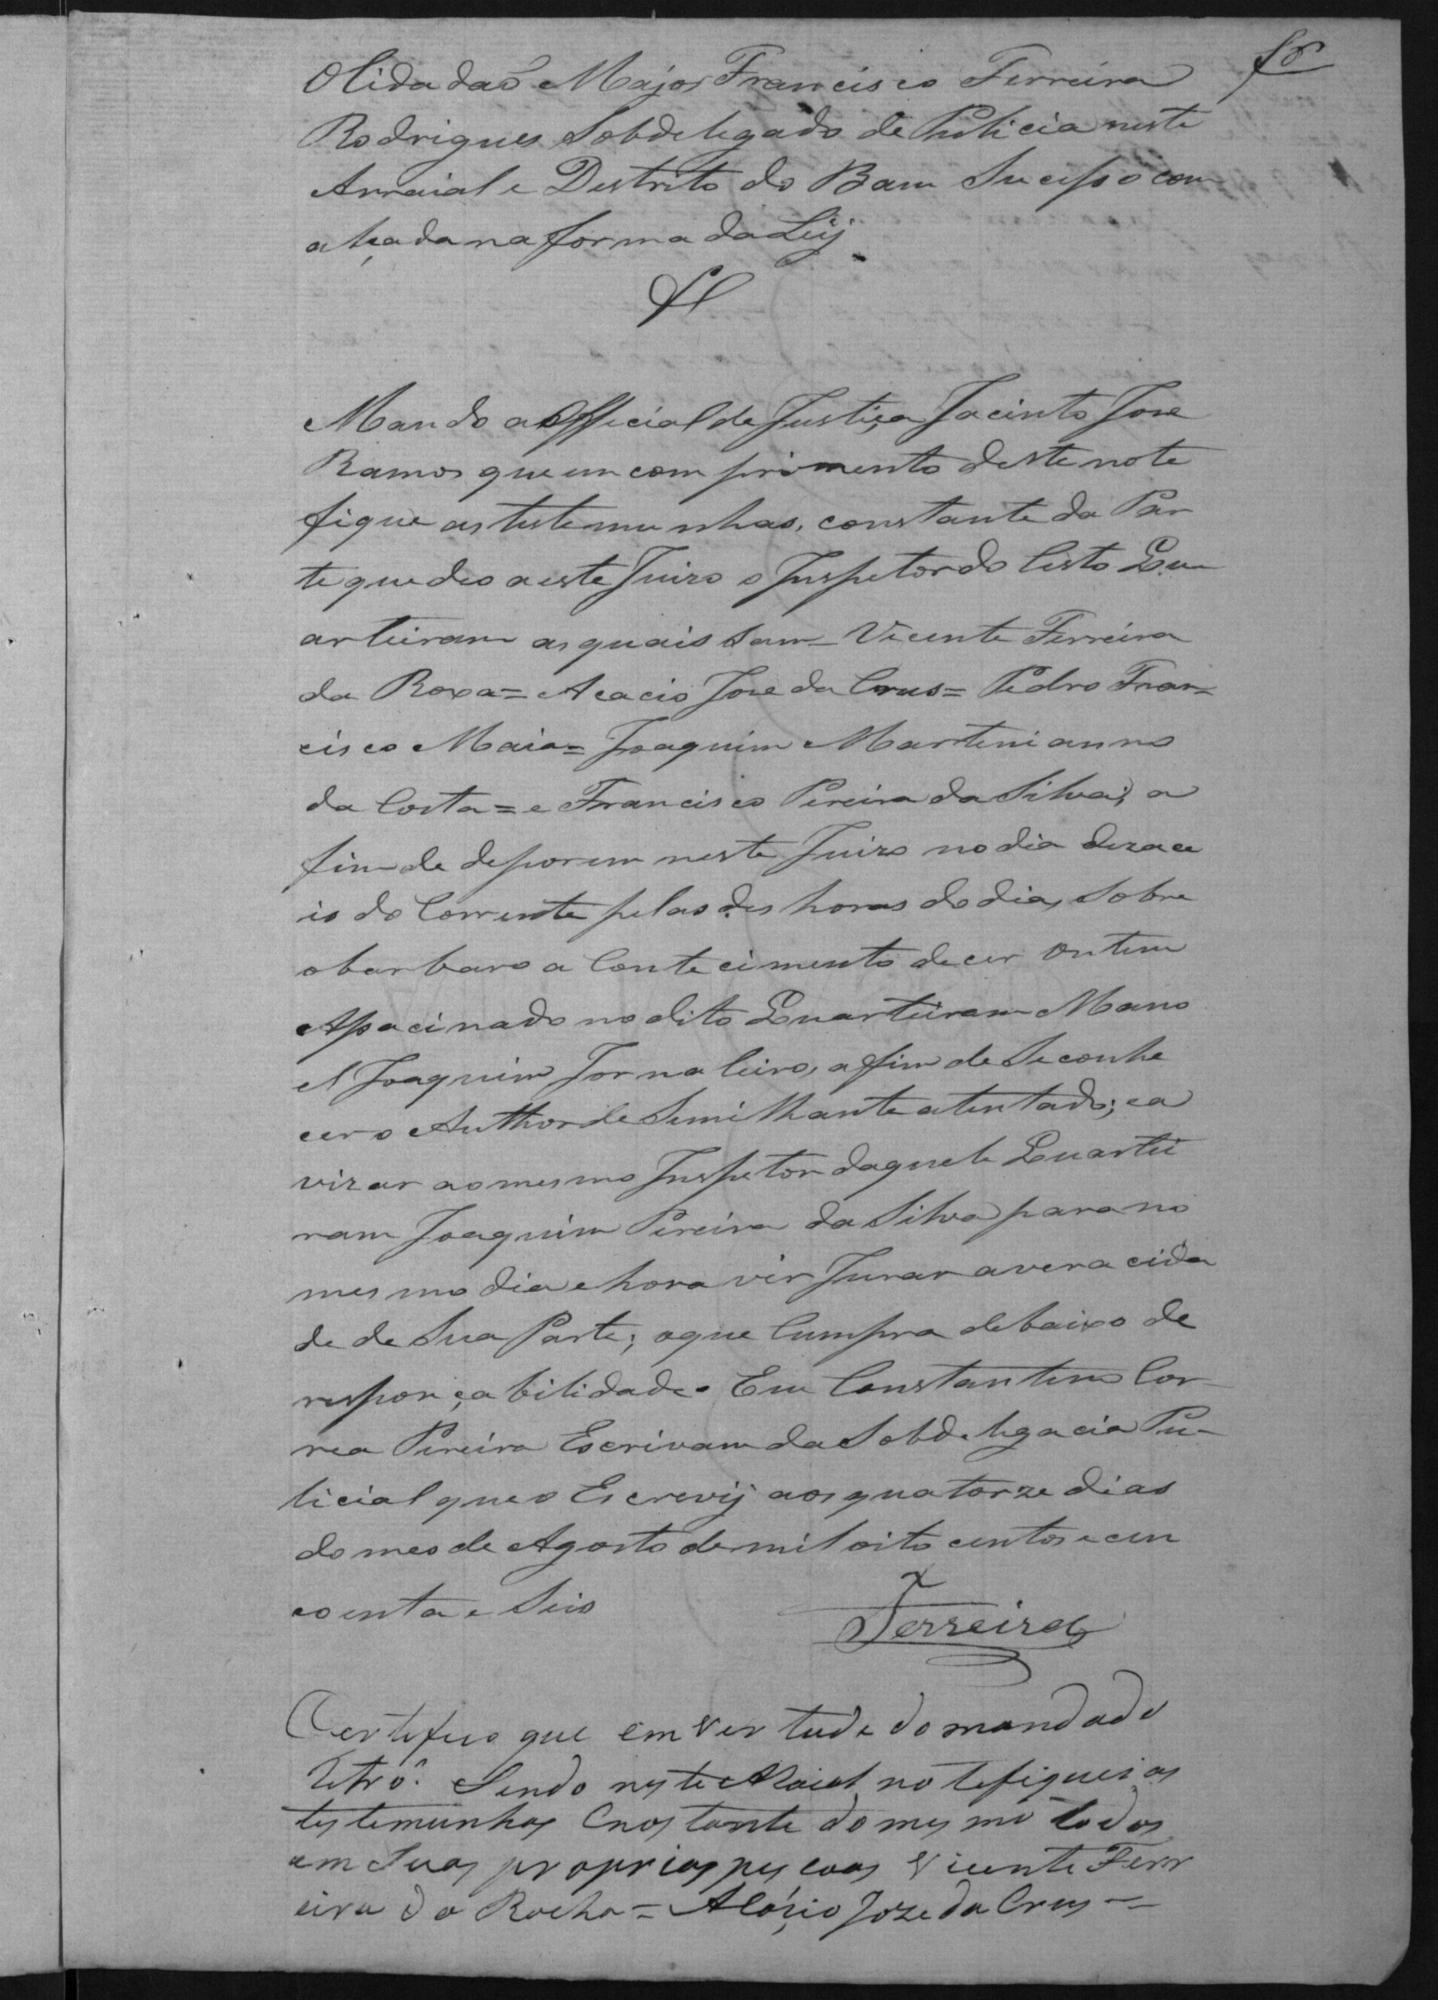 O Cidadaõ Major Francisco Ferreira
Rodrigues Sobdelegado de Policia neste
Arraial e Destrito do Bam Sucesso com
alçada na forma da Leij
Mando a Official de Justiça Jacinto Jose
Ramos que em comprimento deste note
fique as testemunhas, constante da Par
te que deo a este Juizo o Inspetor do Cesto Qu
arteiram as quais Sam = Vicente Ferreira
da Roxa = Acacio Jose da Crus = Pedro Fran=
cisco Maia = Joaquim Martinianno
da Costa = e Francisco Pereira da Silva; a
fim de deporem neste Juizo no dia dezace
is do Corrente pelas des horas do dia, Sobre
o barbaro a Contecimento de cer ontem
Assacinado no dito Quarteiram Mano
el Joaquim Jornaleiro, a fim de Se conhe
cer o Author de Semilhante atentado; e a
vizar ao mesmo Inspetor daquele Quartei
ram Joaquim Pereira da Silva para no
mesmo dia e hora vir Jurar a veracida
de de Sua Parte; o que Cumpra debaixo de
responçabilidade. Eu Constantino Cor
rea Pereira Escrivam da Sobdelegacia Pu-
licial que o Escrevij aos quatorze dias
do mes de Agosto de mil oito centos e cin
coenta e Seis
Ferreira
Certefico que em Vertude do mandado
Retrô. Sendo neste Araial notefiquei as
testemunhas Cnostante do mesmo todos
em Suas proprias pescoas Vicente Ferr
eira da Rocha = Acáçio Joze da Crus =